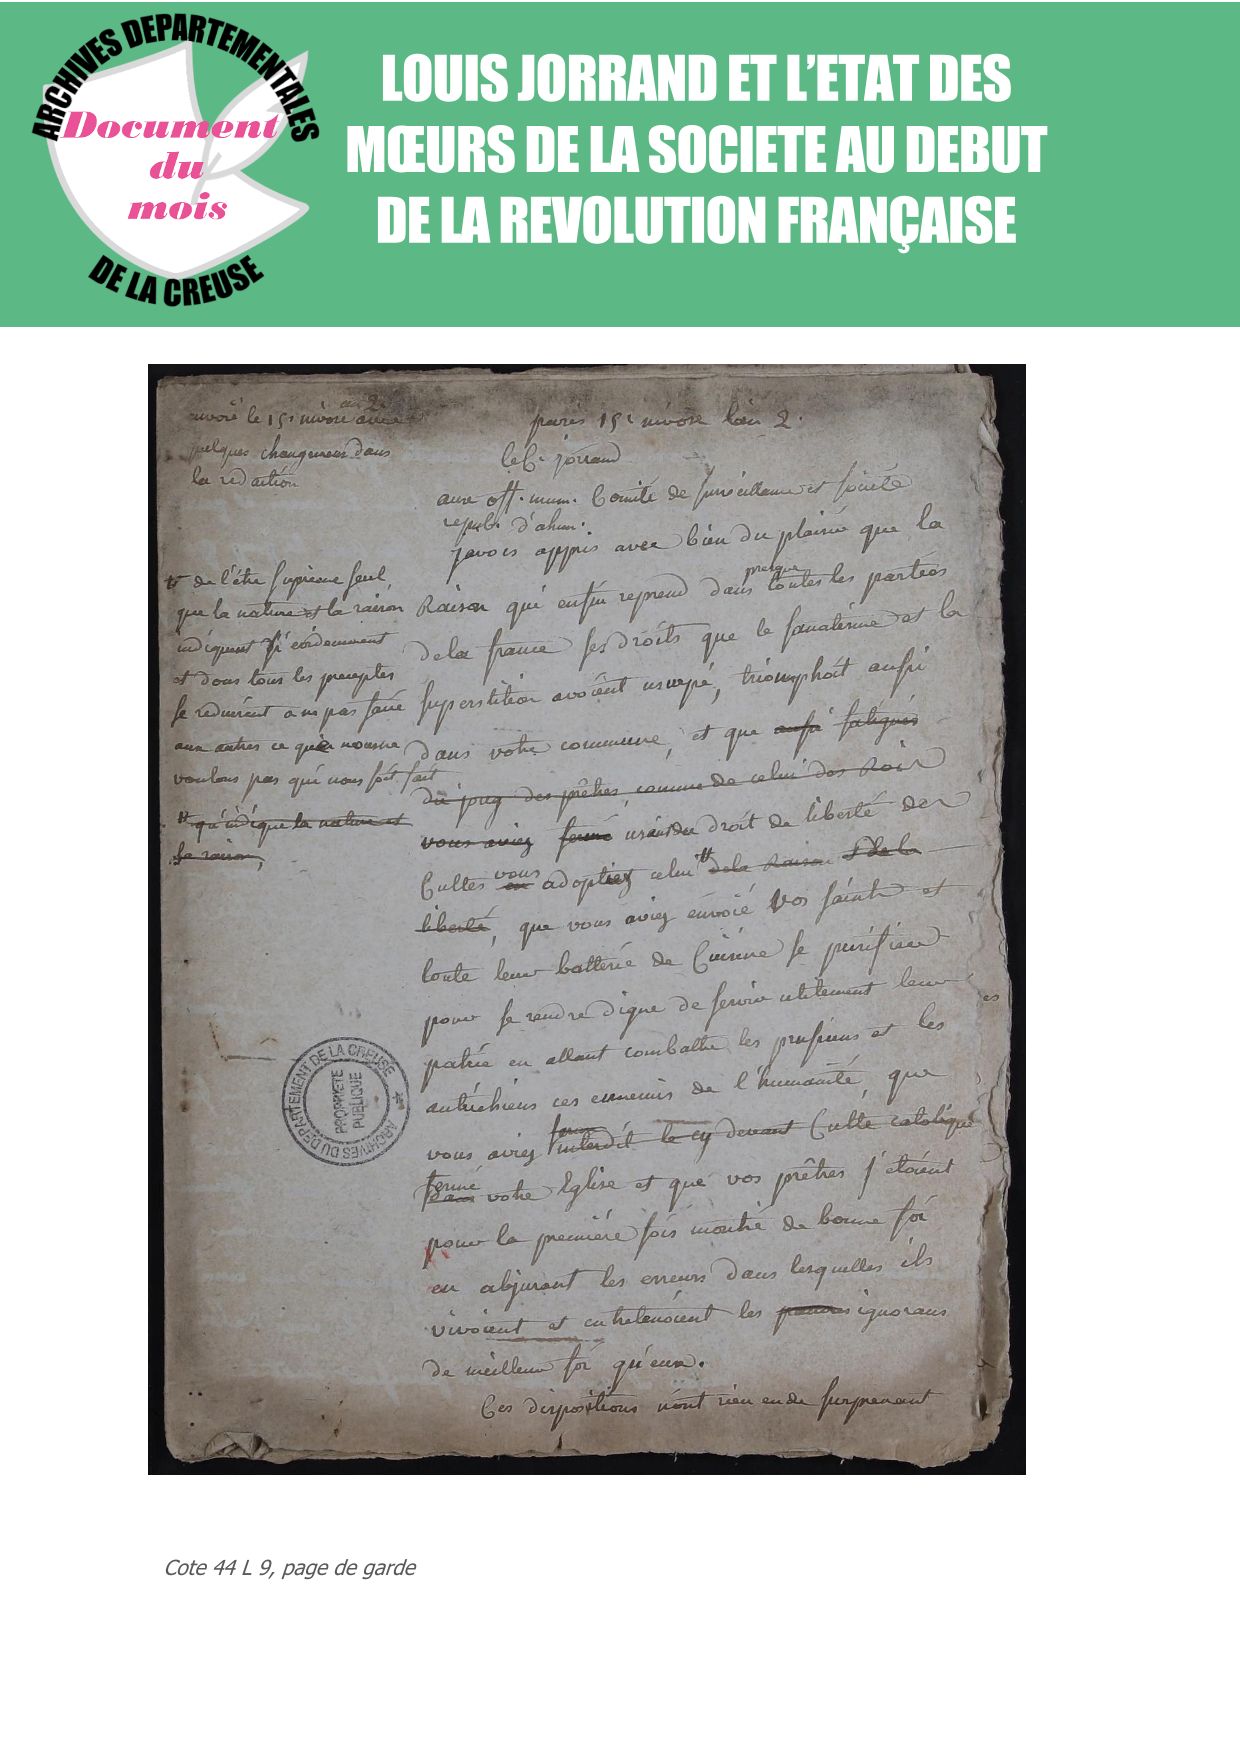 ARCHIVES DEPARTEMENTALES
Document
du
mois
DE LA CREUSE
LOUIS JORRAND ET L’ETAT DES
MŒURS DE LA SOCIETE AU DEBUT
DE LA REVOLUTION FRANÇAISE
envoié le 15 nivose an 2 avec
quelques changemens dans
la redaction
paris 15 nivose l'an 2.
le C. jorrand
aux off. mun. Comité de surveillance et société
repub. d'ahun.
j'avois appris avec bien du plaisir que la
Raison qui enfin reprend dans presque toutes les parties
de la france ses droits que le fanatisme et la
superstition avoient usurpé, triomphoit aussi
dans votre commune, et que aussi fatigués
du joug des prêtres, comme de celui des Rois
vous aviez fermé usant du droit de liberté des
Cultes vous en adoptiez celui tt de la Raison & de la
liberté, que vous aviez envoié vos saints et
toute leur batterie de Cuisine se purifier
pour se rendre digne de servir utilement leur
patrie en allant combattre les prusiens et les
autrichiens ces ennemis de l'humanité, que
vous aviez fermé interdit le cy devant Culte catolique
fermé dans votre Eglise et que vos prêtres s'étoient
pour la première fois montré de bonne foi
en abjurant les erreurs dans lesquelles ils
vivoient et entretenoient les pauvres ignorans
de meilleur foi qu'eux.
Ces dispositions n'ont rien eu de surprenant
tt de l'être suprême seul
que la nature et la raison
indiquent si évidemment
et dont tous les preceptes
se reduisent a ne pas faire
aux autres ce que nous ne
voulons pas qui nous soit fait
tt qu'indique la nature et
la raison,
ARCHIVES DU DEPARTEMENT DE LA CREUSE
PROPRIETE
PUBLIQUE
Cote 44 L 9, page de garde